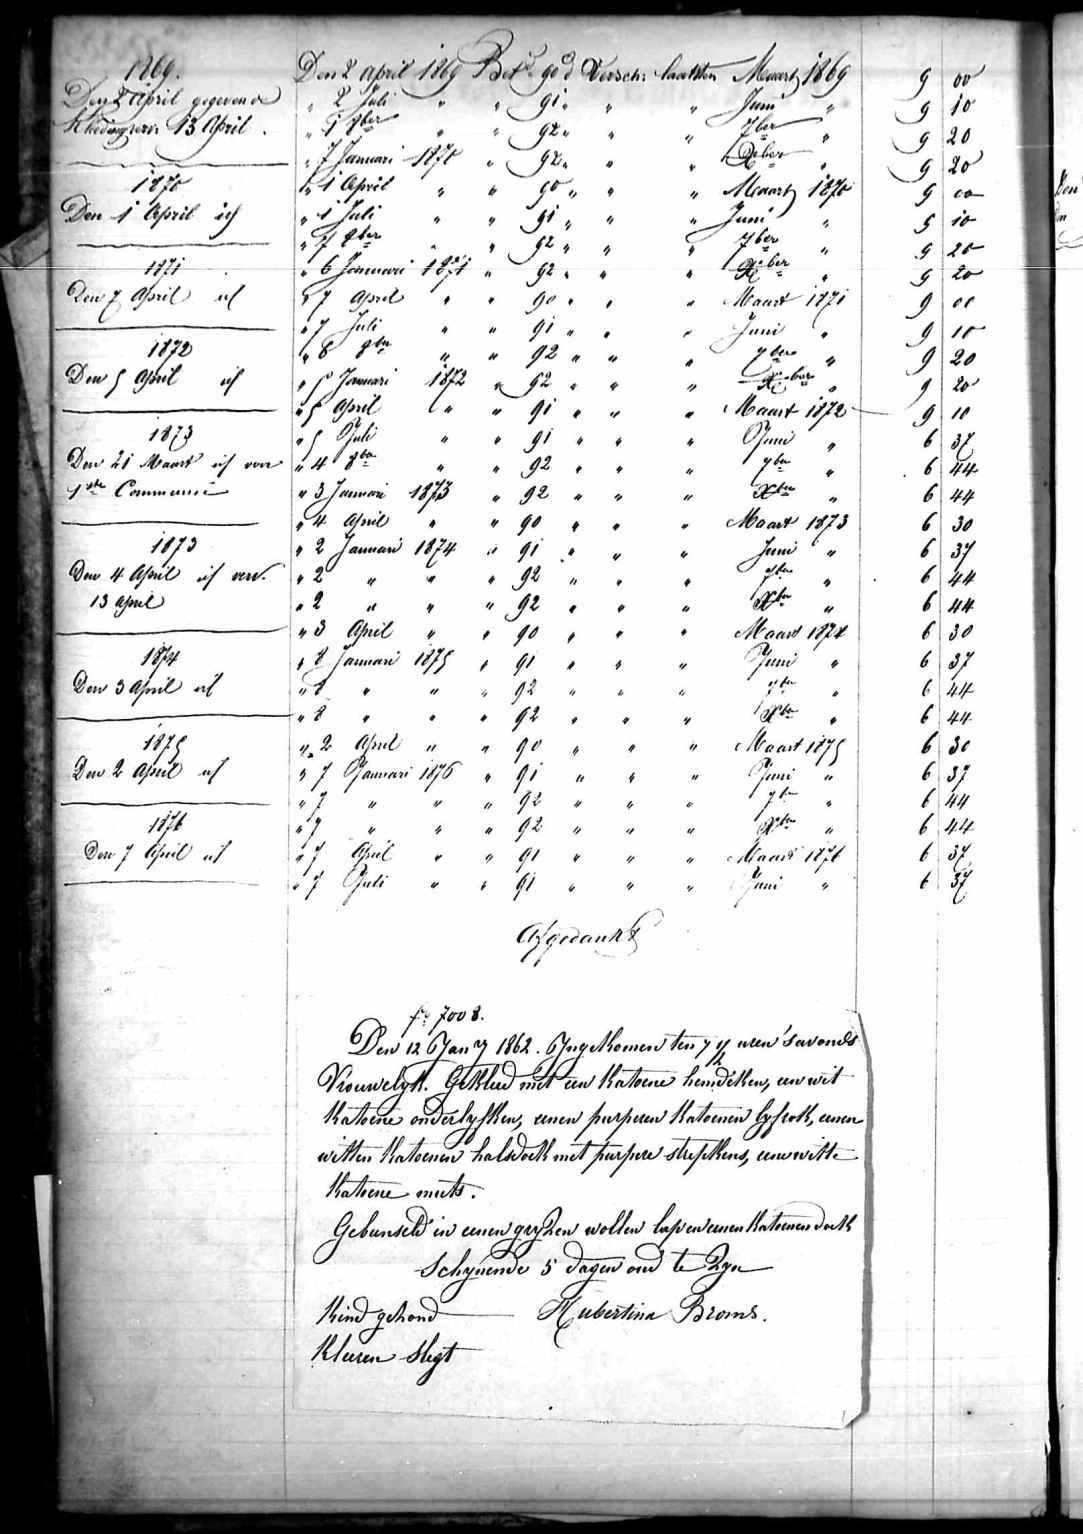 1869.
Den 2 April gegeven de
Kledingren 13 April.
1870
Den 1 April id
1871
Den 7 April id
1872
Den 5 April id
1873
Den 21 Maart id voor
1ste Communie
1873
Den 4 April id verv.
13 April
1874
Den 3 April id
1875
Den 2 April id
1876
Den 7 April id
Den 2 April 1869 Betd 90 d Versch: laatsten Maart 1869 9 00
" 2 Juli " " 91 " " " Juni " 9 10
" 1 8ber " " 92 " " " 7ber " 9 20
" 7 Januari 1870 " 92 " " " Xber " 9 20
" 1 April " " 90 " " " Maart 1870 9 00
" 1 Juli " " 91 " " " Juni " 9 10
" 7 8ber " " 92 " " " 7ber " 9 20
" 6 Januari 1871 " 92 " " " Xber " 9 20
" 7 April " " 90 " " " Maart 1871 9 00
" 7 Juli " " 91 " " " Juni " 9 10
" 6 8ber " " 92 " " " 7ber " 9 20
" 5 Januari 1872 " 92 " " " Xber " 9 20
" 5 April " " 91 " " " Maart 1872 9 10
" 5 Juli " " 91 " " " Juni " 6 37
" 4 8ber " " 92 " " " 7ber " 6 44
" 3 Januari 1873 " 92 " " " Xber " 6 44
" 4 April " " 90 " " " Maart 1873 6 30
" 2 Januari 1874 " 91 " " " Juni " 6 37
" 2 " " " 92 " " " 7ber " 6 44
" 2 " " " 92 " " " Xber " 6 44
" 3 April " " 90 " " " Maart 1874 6 30
" 8 Januari 1875 " 91 " " " Juni " 6 37
" 8 " " " 92 " " " 7ber " 6 44
" 8 " " " 92 " " " Xber " 6 44
" 2 April " " 90 " " " Maart 1875 6 30
" 7 Januari 1876 " 91 " " " Juni " 6 37
" 7 " " " 92 " " " 7ber " 6 44
" 7 " " " 92 " " " Xber " 6 44
" 7 April " " 91 " " " Maart 1876 6 37
" 7 Juli " " 91 " " " Juni " 6 37
Afgedankt
fo 7008.
Den 12 Jany 1862. Ingekomen ten 7 1/2 uren 'savonds
Vrouwelyk. Gekleed met een katoene hemdeken, een wit
katoene onderlyfken, eenen purperen katoenen lyfrok, eenen
witten katoenen halsdoek met purpere strepkens, eene witte
katoene muts.
Gebunseld in eenen gryzen wollen lap en eenen katoenen doek
Schynende 5 dagen oud te Zyn
Kind gezond — Hubertina Broms.
Kleeren slegt